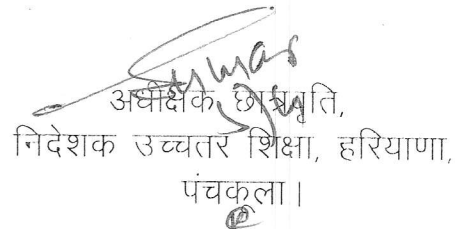 अधीक्षक छात्रवृति,
निदेशक उच्चतर शिक्षा, हरियाणा,
पंचकूला।